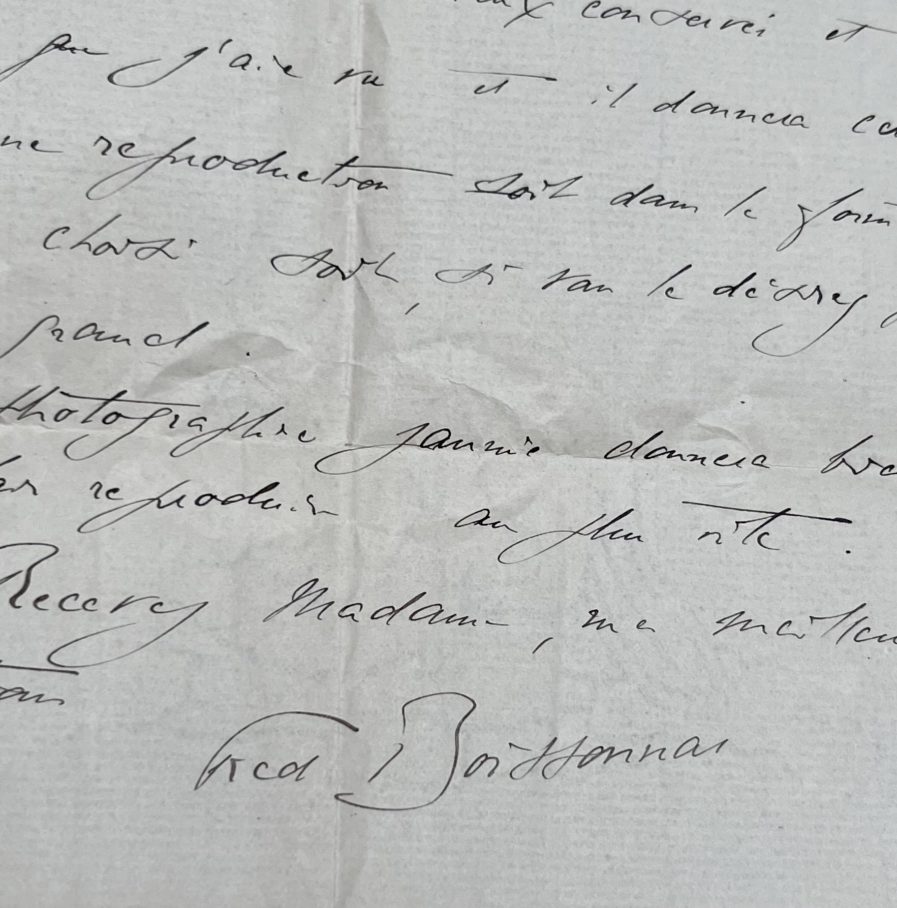 conservé et
que j'aie vu et il donnera
une reproduction soit dans le form
choisi soit, si vous le désirez
grand.
Photographie jaunie donnera
reproduire au plus vite.
Recevez Madame, mes meilleu
Fred Boissonnas